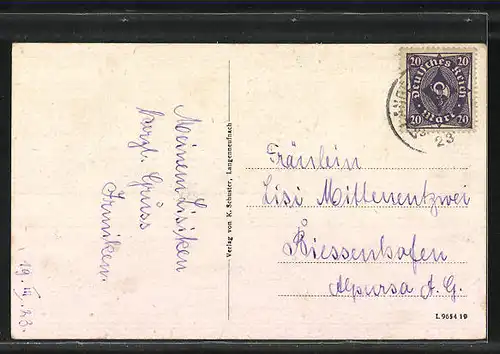 Meinem Lisiken
herzl. Gruss
19. III. 23.
Verlag von K. Schuster, Langenneufnach
20 20
Deutsches Reich
Mark
20 20
23
Fräulein
Lisi Mittenentzwei
Biessenhofen
Alpursa A. G.
L 9654 19